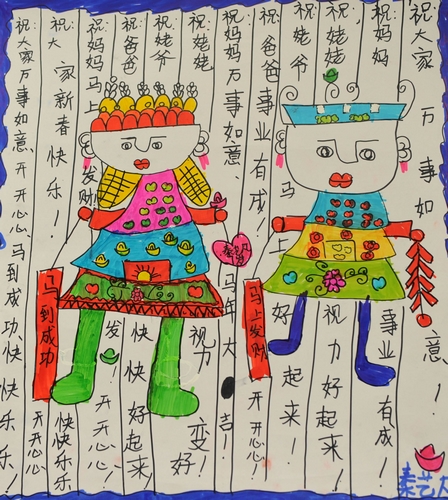 祝大家万事如意、
祝妈妈事业有成！
祝姥姥视力好起来！
祝姥爷马上好起来！
祝爸爸事业有成！开开心心
祝妈妈万事如意马年大吉！
祝姥姥视力变好！
祝姥爷快快好起来！
祝爸爸发！开开心心！
祝妈妈马上发财
祝大家新春快乐！快快乐乐
祝大家万事如意、开开心心、马到成功、快快乐乐、开开心心！
马上发财
马到成功